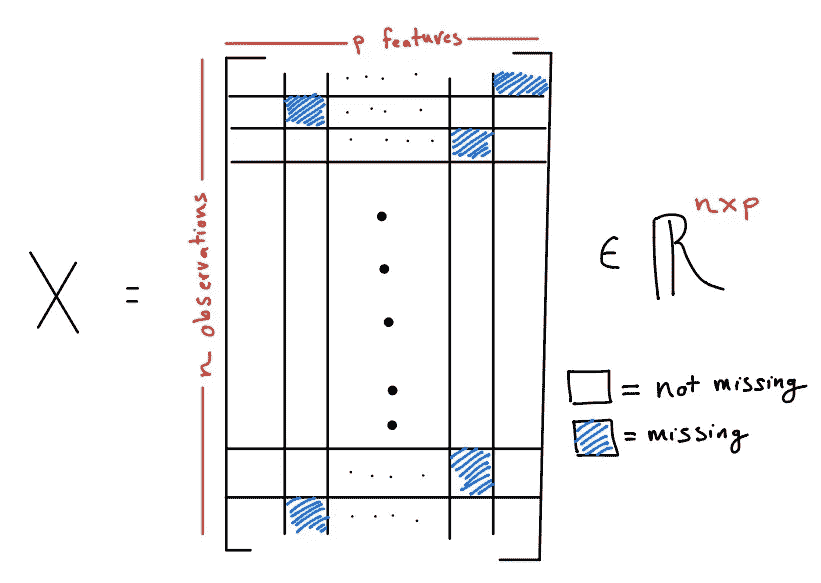 p features
n observations
X = ∈ ℝ n×p
= not missing
= missing